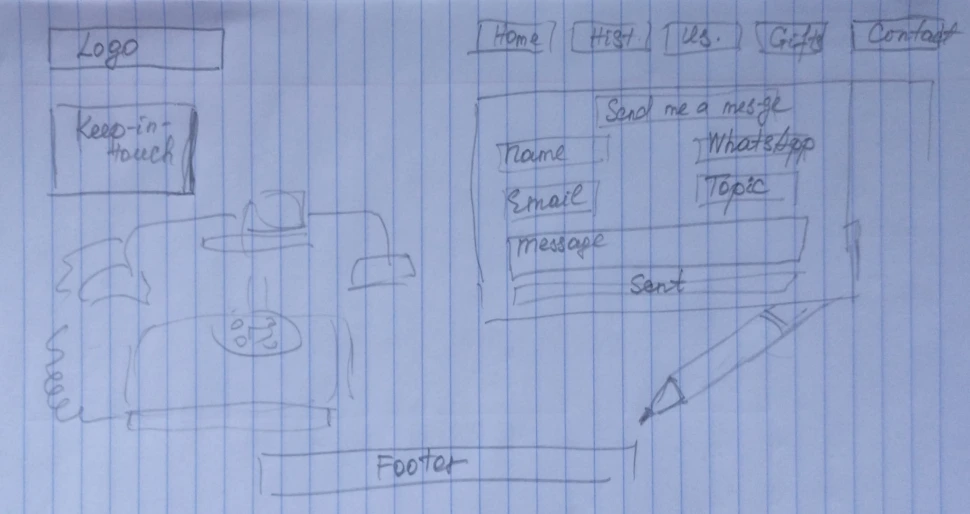 Logo
Home
Hist.
Us.
Gifts
Contact
Keep-in-
touch
Send me a mes-ge
Name
WhatsApp
Email
Topic
message
Sent
Footer